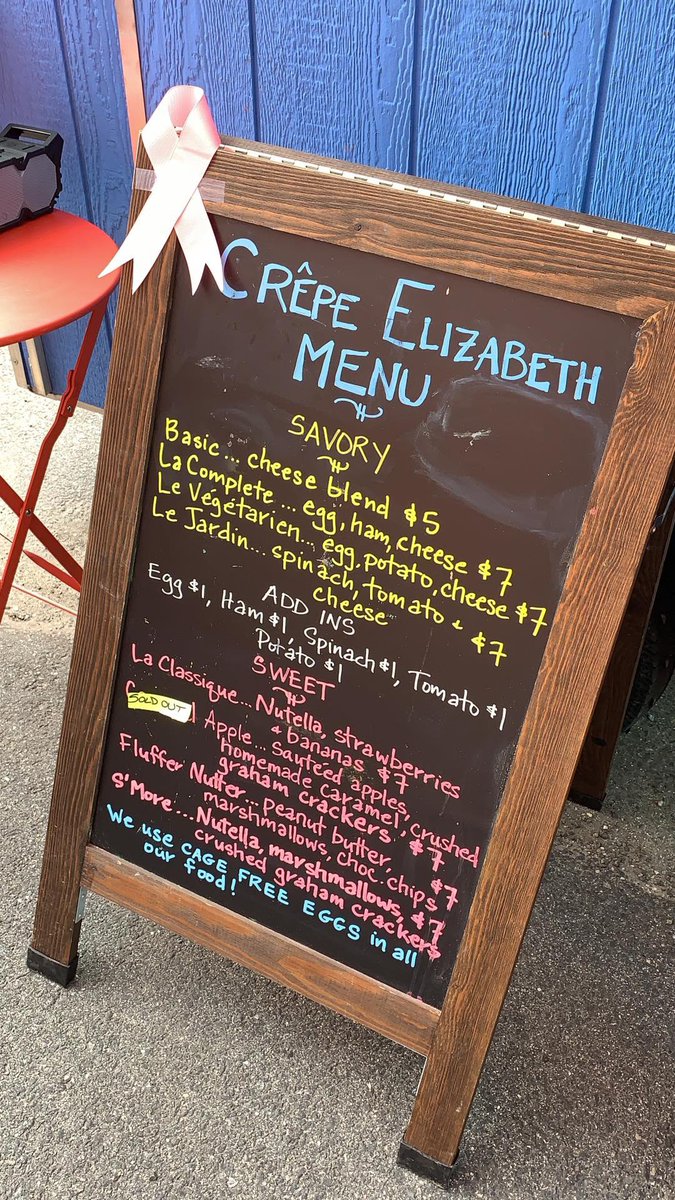 CRÊPE ELIZABETH
MENU
SAVORY
Basic... cheese blend $5
La Complete ... egg, ham, cheese $7
Le Végétarien... egg, potato, cheese $7
Le Jardin... spinach, tomato &
cheese $7
ADD INS
Egg $1, Ham $1, Spinach $1, Tomato $1
Potato $1
SWEET
La Classique... Nutella, strawberries
& bananas $7
SOLD OUT Apple... Sautéed apples,
homemade caramel, crushed
graham crackers $7
Fluffer Nutter... peanut butter,
marshmallows, choc. chips $7
S'More... Nutella, marshmallows, $7
crushed graham crackers
We use CAGE FREE EGGS in all
our food!